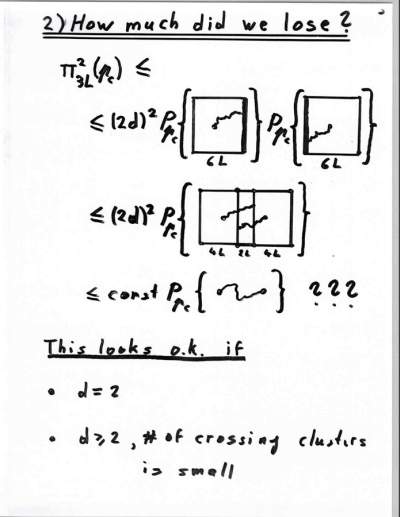 2) How much did we lose?
π²_{3L}(p_c) ≤
≤ (2d)² P_{p_c} { } P_{p_c} { }
6L 6L
≤ (2d)² P_{p_c} { }
4L 2L 4L
≤ const P_{p_c} { } ???
This looks o.k. if
• d = 2
• d ≥ 2, # of crossing clusters
is small